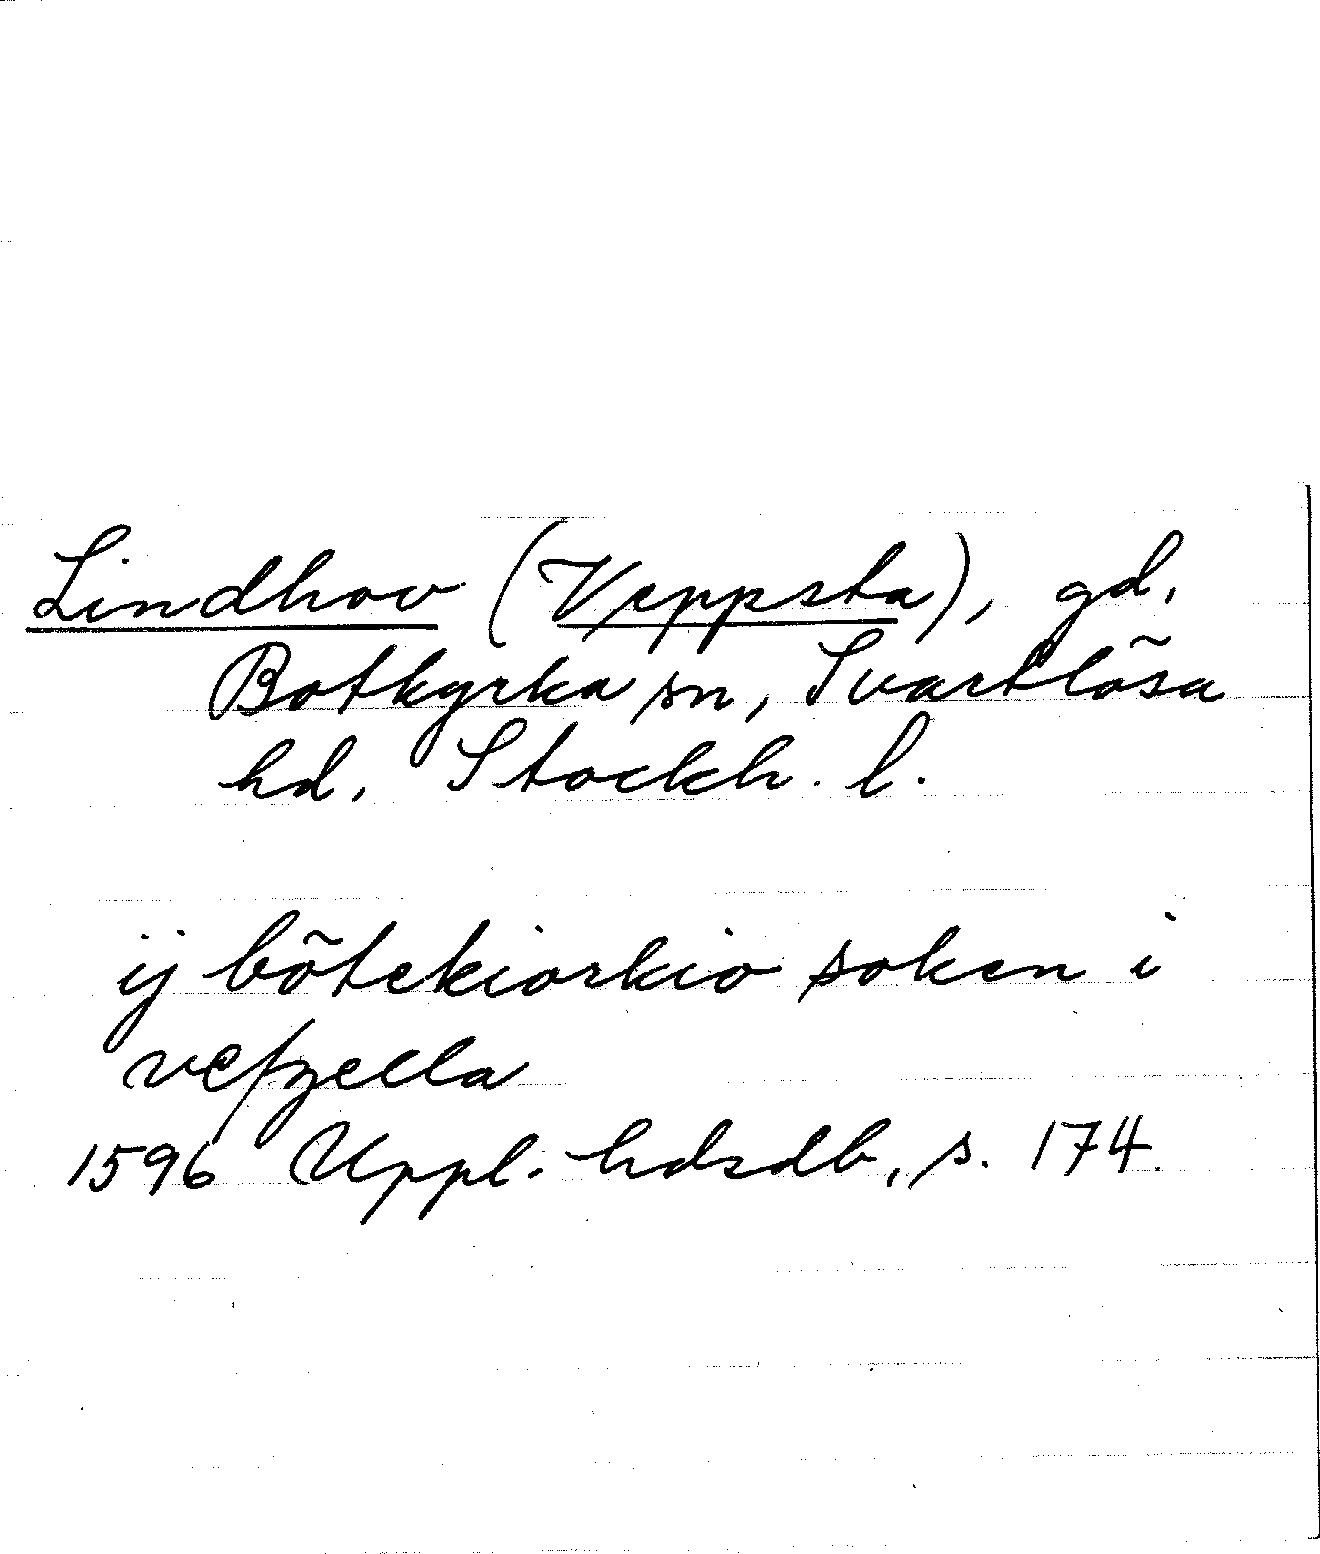 Lindhov (Veppsta), gd.
Botkyrka sn, Svartlösa
hd. Stockh. l.
ij bötekiorkio soken i
vefzella
1596 Uppl. hdsdb. s. 174.